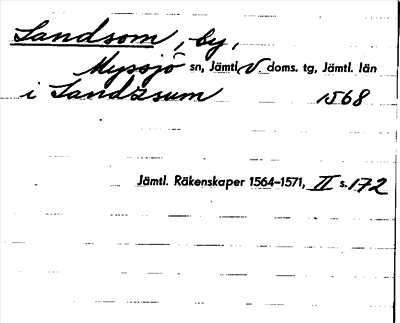 Sandsom, by,
Myssjö sn, Jämtl. V. doms. tg, Jämtl. län
i Sandzsum 1568
Jämtl. Räkenskaper 1564-1571, II s. 172